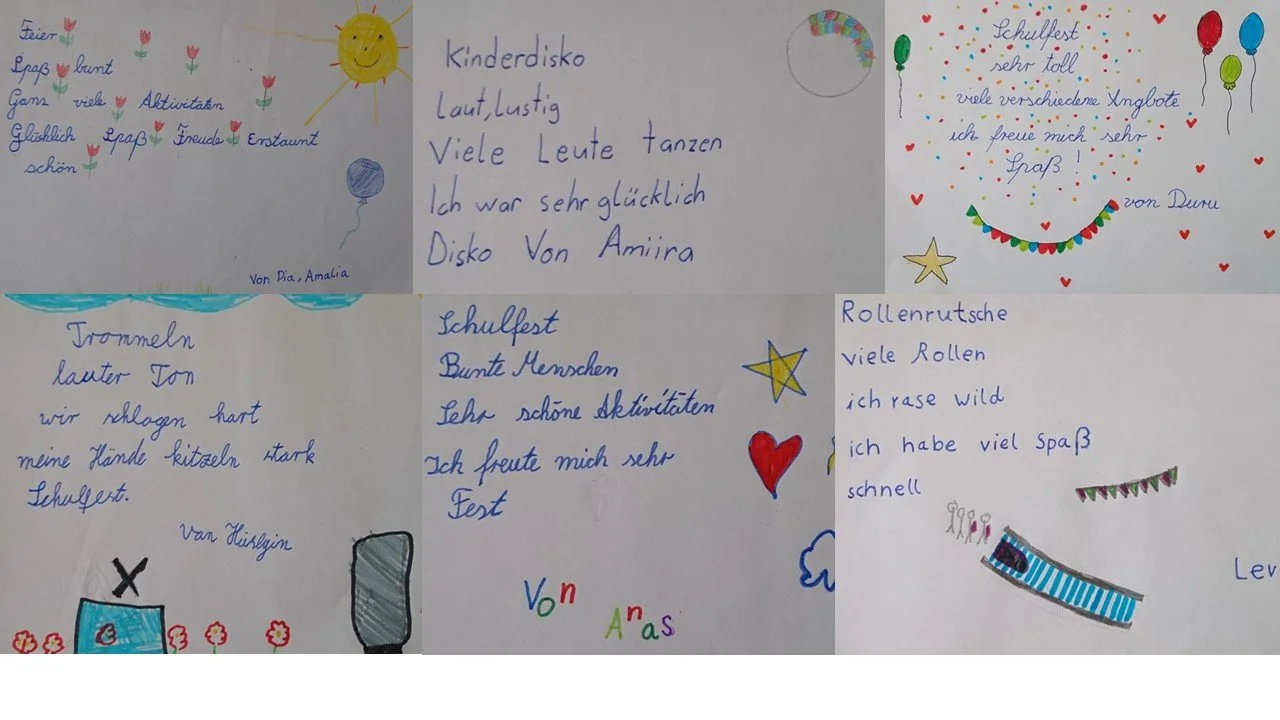 Feier
Spaß bunt
Ganz viele Aktivitäten
Glücklich Spaß Freude Erstaunt
schön
Von Pia, Amalia
Kinderdisko
Laut, Lustig
Viele Leute tanzen
Ich war sehr glücklich
Disko Von Amiira
Schulfest
sehr toll
viele verschiedene Angbote
ich freue mich sehr
Spaß!
von Duru
Trommeln
lauter Ton
wir schlagen hart
meine Hände kitzeln stark
Schulfest.
Schulfest
Bunte Menschen
Sehr schöne Aktivitäten
Ich freute mich sehr
Fest
Von
Anas
Rollenrutsche
viele Rollen
ich rase wild
ich habe viel Spaß
schnell
Lev